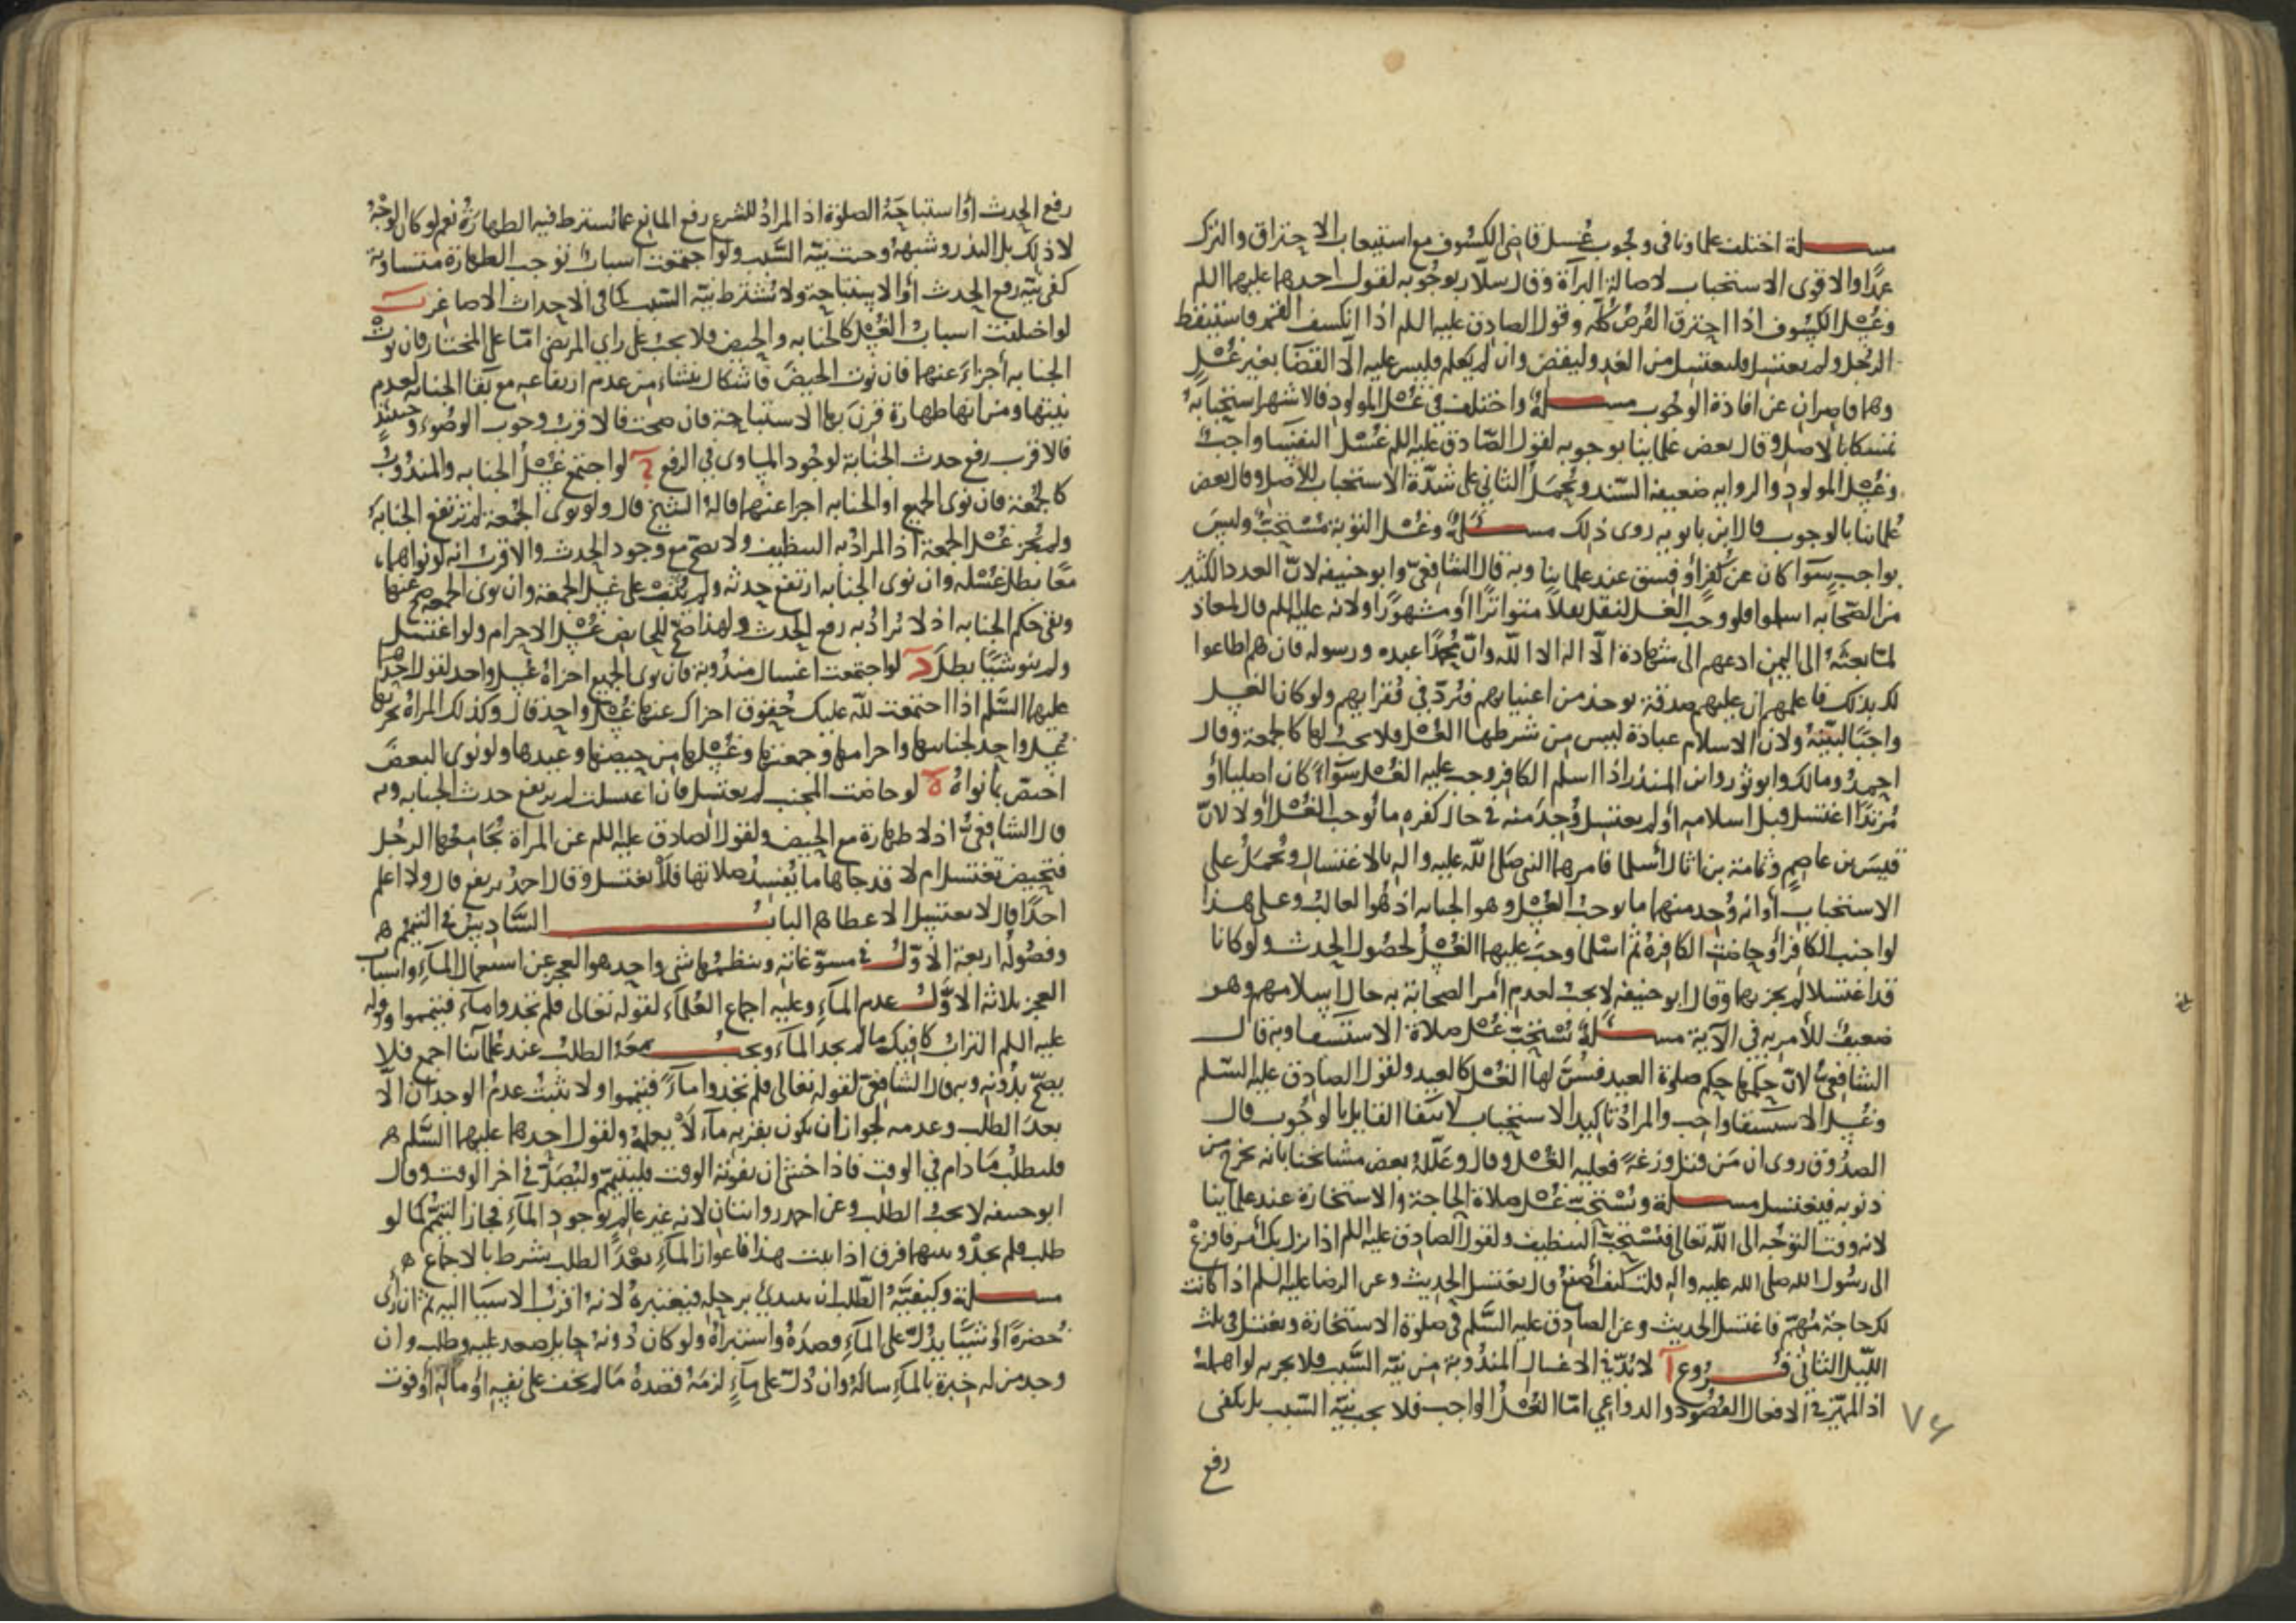 مسـلة اختلف علماونا فى وجوب غسل قاضى الكسوف مع استيعاب الاحتراق والترك
عمدًا والاقوى الاستحباب لاصالة البرآة وقال سلّار بوجوبه لقول احدهما عليهما اللم
وغسل الكسوف اذا احترق القرص كلّه وقول الصادق عليه اللم اذا انكسف القمر فاستيقظ
الرجل ولم يغتسل فليغتسل من الغد وليقض وان لم يعلم فليس عليه الّا القضآ بغير غسل
وهما قاصران عن افادة الوجوب مسـلة واختلف فى غسل المولود فالاشهر استحبابه
تمسكا بالاصل وقال بعض علماينا بوجوبه لقول الصّادق عليه اللم غسل النفسا واجب
وغسل المولود والروايه ضعيفة السّند ونحمل الثانى على شدّة الاستحباب للاصل وقال بعض
علماينا بالوجوب قال ابن بابويه روى ذلك مسـئلة وغسل التوبة مستحبّ وليس
بواجب سوآ كان عن كفر أو فسق عند علماينا وبه قال الشافعىّ وابو حنيفه لانّ العدد الكثير
من الصّحابه اسلموا فلو وجب الغسل لنقل نقلًا متواترًا أو مشهورًا ولانه عليه اللم قال لمعاذ
لمّا بعثه الى اليمن ادعهم الى شهادة الّا اله الا اللّه وانّ محمّدًا عبده ورسوله فان هم اطاعوا
لك بذلك فاعلمهم ان عليهم صدقة توخذ من اغنيايهم فتردّ فى فقرايهم ولو كان الغسل
واجبًا لبيّنه ولان الاسلام عبادة ليس من شرطها الغسل فلا يجب لها كالجمعة وقال
احمد ومالك وابو ثور وابن المنذر اذا اسلم الكافر وجب عليه الغسل سوآ كان اصليا أو
مرتدًا اغتسل قبل اسلامه أو لم يغتسل وجد منه فى حال كفره ما يوجب الغسل أو لا لانّ
قيس بن عاصم وثمامة بن اثال أسلما فامرهما النبى صلى اللّه عليه واله بالاغتسال ونحمل على
الاستحباب أو انه وجد منهما ما يوجب الغسل وهو الجنابه اذ هو الغالب وعلى هذا
لو اجنب الكافر أو حاضت الكافرة ثم اسلما وجب عليهما الغسل لحصول الحدث ولو كانا
قد اغتسلا لم يجزهما وقال ابو حنيفه لا يجب لعدم أمر الصحابة به حال اسلامهم وهو
ضعيف للأمر به فى الآية مسـئلة يستحبّ غسل صلاة الاستسقا وبه قال
الشافعى لانّ حكمها حكم صلوة العيد فسنّ لها الغسل كالعيد ولقول الصادق عليه السّلم
وغسل الاستسقا واجب والمراد تاكيد الاستحباب لانتفا القايل بالوجوب قال
الصدوق روى ان من قتل وزغة فعليه الغسل وقال وعلّله بعض مشايخنا بانه يخرج من
ذنوبه فيغتسل مسـلة ويستحبّ غسل صلاة الحاجة والاستخارة عند علماينا
لانه وقت التوجّه الى اللّه تعالى فيستحبّ التنظيف ولقول الصادق عليه اللم اذا نزل بك أمر فافزع
الى رسول الله صلى الله عليه واله قلت كيف أصنع قال يغتسل الحديث وعن الرضا عليه السلم اذا كانت
لك حاجة مهمّة فاغتسل الحديث وعن الصادق عليه السّلم فى صلوة الاستخارة ويغتسل فى ثلث
الليل الثانى فـروع آ لا بدّ فى الاغسال المندوبة من نيّة السّبب فلا يجزيه لو اهمله
اذ المميّز فى الافعال القصود والدواعى امّا الغسل الواجب فلا يجب نيّة السّبب بل يكفى
رفع
رفع الحدث أو استباحة الصلوة اذ المراد للشرع رفع المانع عمّا يشترط فيه الطهارة نعم لو كان الوجه
لا ذلك بل النذر وشبهه وجبت نيّة السّبب ولو اجتمعت اسباب توجب الطهارة متساوية
كفى نيّة رفع الحدث أو الاستباحة ولا يشترط نيّة السّبب كما فى الاحداث الاصاغر ب
لو اختلفت اسباب الغسل كالجنابه والحيض فلا يجب على راى المرتضى امّا على المختار فان نوت
الجنابه أجزاء عنهما فان نوت الحيض فاشكال ينشاء من عدم ارتفاعه مع بقا الجنابه لعدم
نيتها ومن انها طهارة قرن بها الاستباحة فان صحت فالاقرب وجوب الوضوء وحينئذ
فالاقرب رفع حدث الجنابة لوجود المساوى فى الرفع ج لو اجتمع غسل الجنابه والمندوب
كالجمعة فان نوى الجميع او الجنابه اجزا عنهما قاله الشيخ قال ولو نوى الجمعة لم ترتفع الجنابة
ولم يجز غسل الجمعة اذ المراد به التنظيف ولا يصحّ مع وجود الحدث والاقرب انه لو نواهما
معًا بطل غسله وان نوى الجنابه ارتفع حدثه ولم يثب على غسل الجمعة وان نوى الجمعه صح عنها
وبقى حكم الجنابه اذ لا يراد به رفع الحدث ولهذا صحّ للحايض غسل الاحرام ولو اغتسل
ولم ينو شيئًا بطل د لو اجتمعت اغسال مندوبة فان نوى الجميع اجزاه غسل واحد لقول احدهما
عليهما السّلم اذا اجتمعت للّه عليك حقوق اجزاك عنها غسل واحد قال وكذلك المراة يجزيها
غسل واحد لجنابتها واحرامها وجمعتها وغسلها من حيضها وعيدها ولو نوى البعض
اختصّ بما نواه ه لو حاضت المجنب لم يغتسل فان اغتسلت لم يرتفع حدث الجنابه وبه
قال الشافعىّ اذ لا طهارة مع الحيض ولقول الصادق عليه اللم عن المراة يجامعها الرجل
فتحيض تغتسل ام لا قد جاها ما يفسد صلاتها فلا يغتسل وقال احمد يرتفع قال ولا اعلم
احدًا قال لا يغتسل الا عطا هـ البابـ السّادس فى التيمم هـ
وفصوله اربعة الاوّل فى مسوّغاته وينظمها شى واحد هو العجز عن استعمال المآء واسباب
العجز ثلاثة الاوّل عدم المآء وعليه اجماع العلمآء لقوله تعالى فلم تجدوا مآء فتيمموا وقوله
عليه اللم التراب كافيك ما لم يجد المآء ويجب معه الطلب عند علمآئنا اجمع فلا
يصحّ بدونه وبه قال الشافعى لقوله تعالى فلم تجدوا مآءً فتيمموا ولا يثبت عدم الوجدان الّا
بعد الطلب وعدمه لجواز ان يكون بقربه مآء لا يعلمه ولقول احدهما عليهما السّلم هـ
فليطلب ما دام فى الوقت فاذا خشى ان يفوته الوقت فليتيمّم وليصلّ فى اخر الوقت وقال
ابو حنيفه لا يجب الطلب وعن احمد روايتان لانه غير عالم بوجود المآء فجاز التيمّم كما لو
طلب فلم يجد وبينهما فرق اذا ثبت هذا فاعواز المآء بعد الطلب شرط بالاجماع هـ
مسـلة وكيفيّة الطّلب ان يبتدئ برحله فيعتبره لانه اقرب الاسيا اليه ثم ان رأى
خضرة أو شيئًا يدلّ على المآء قصده واستبراه ولو كان دونه حايل صعد عليه وطلب وان
وجد من له خبرة بالمآء ساله وان دلّ على مآءٍ لزمه قصده ما لم يخف على نفسه أو ماله أو فوت